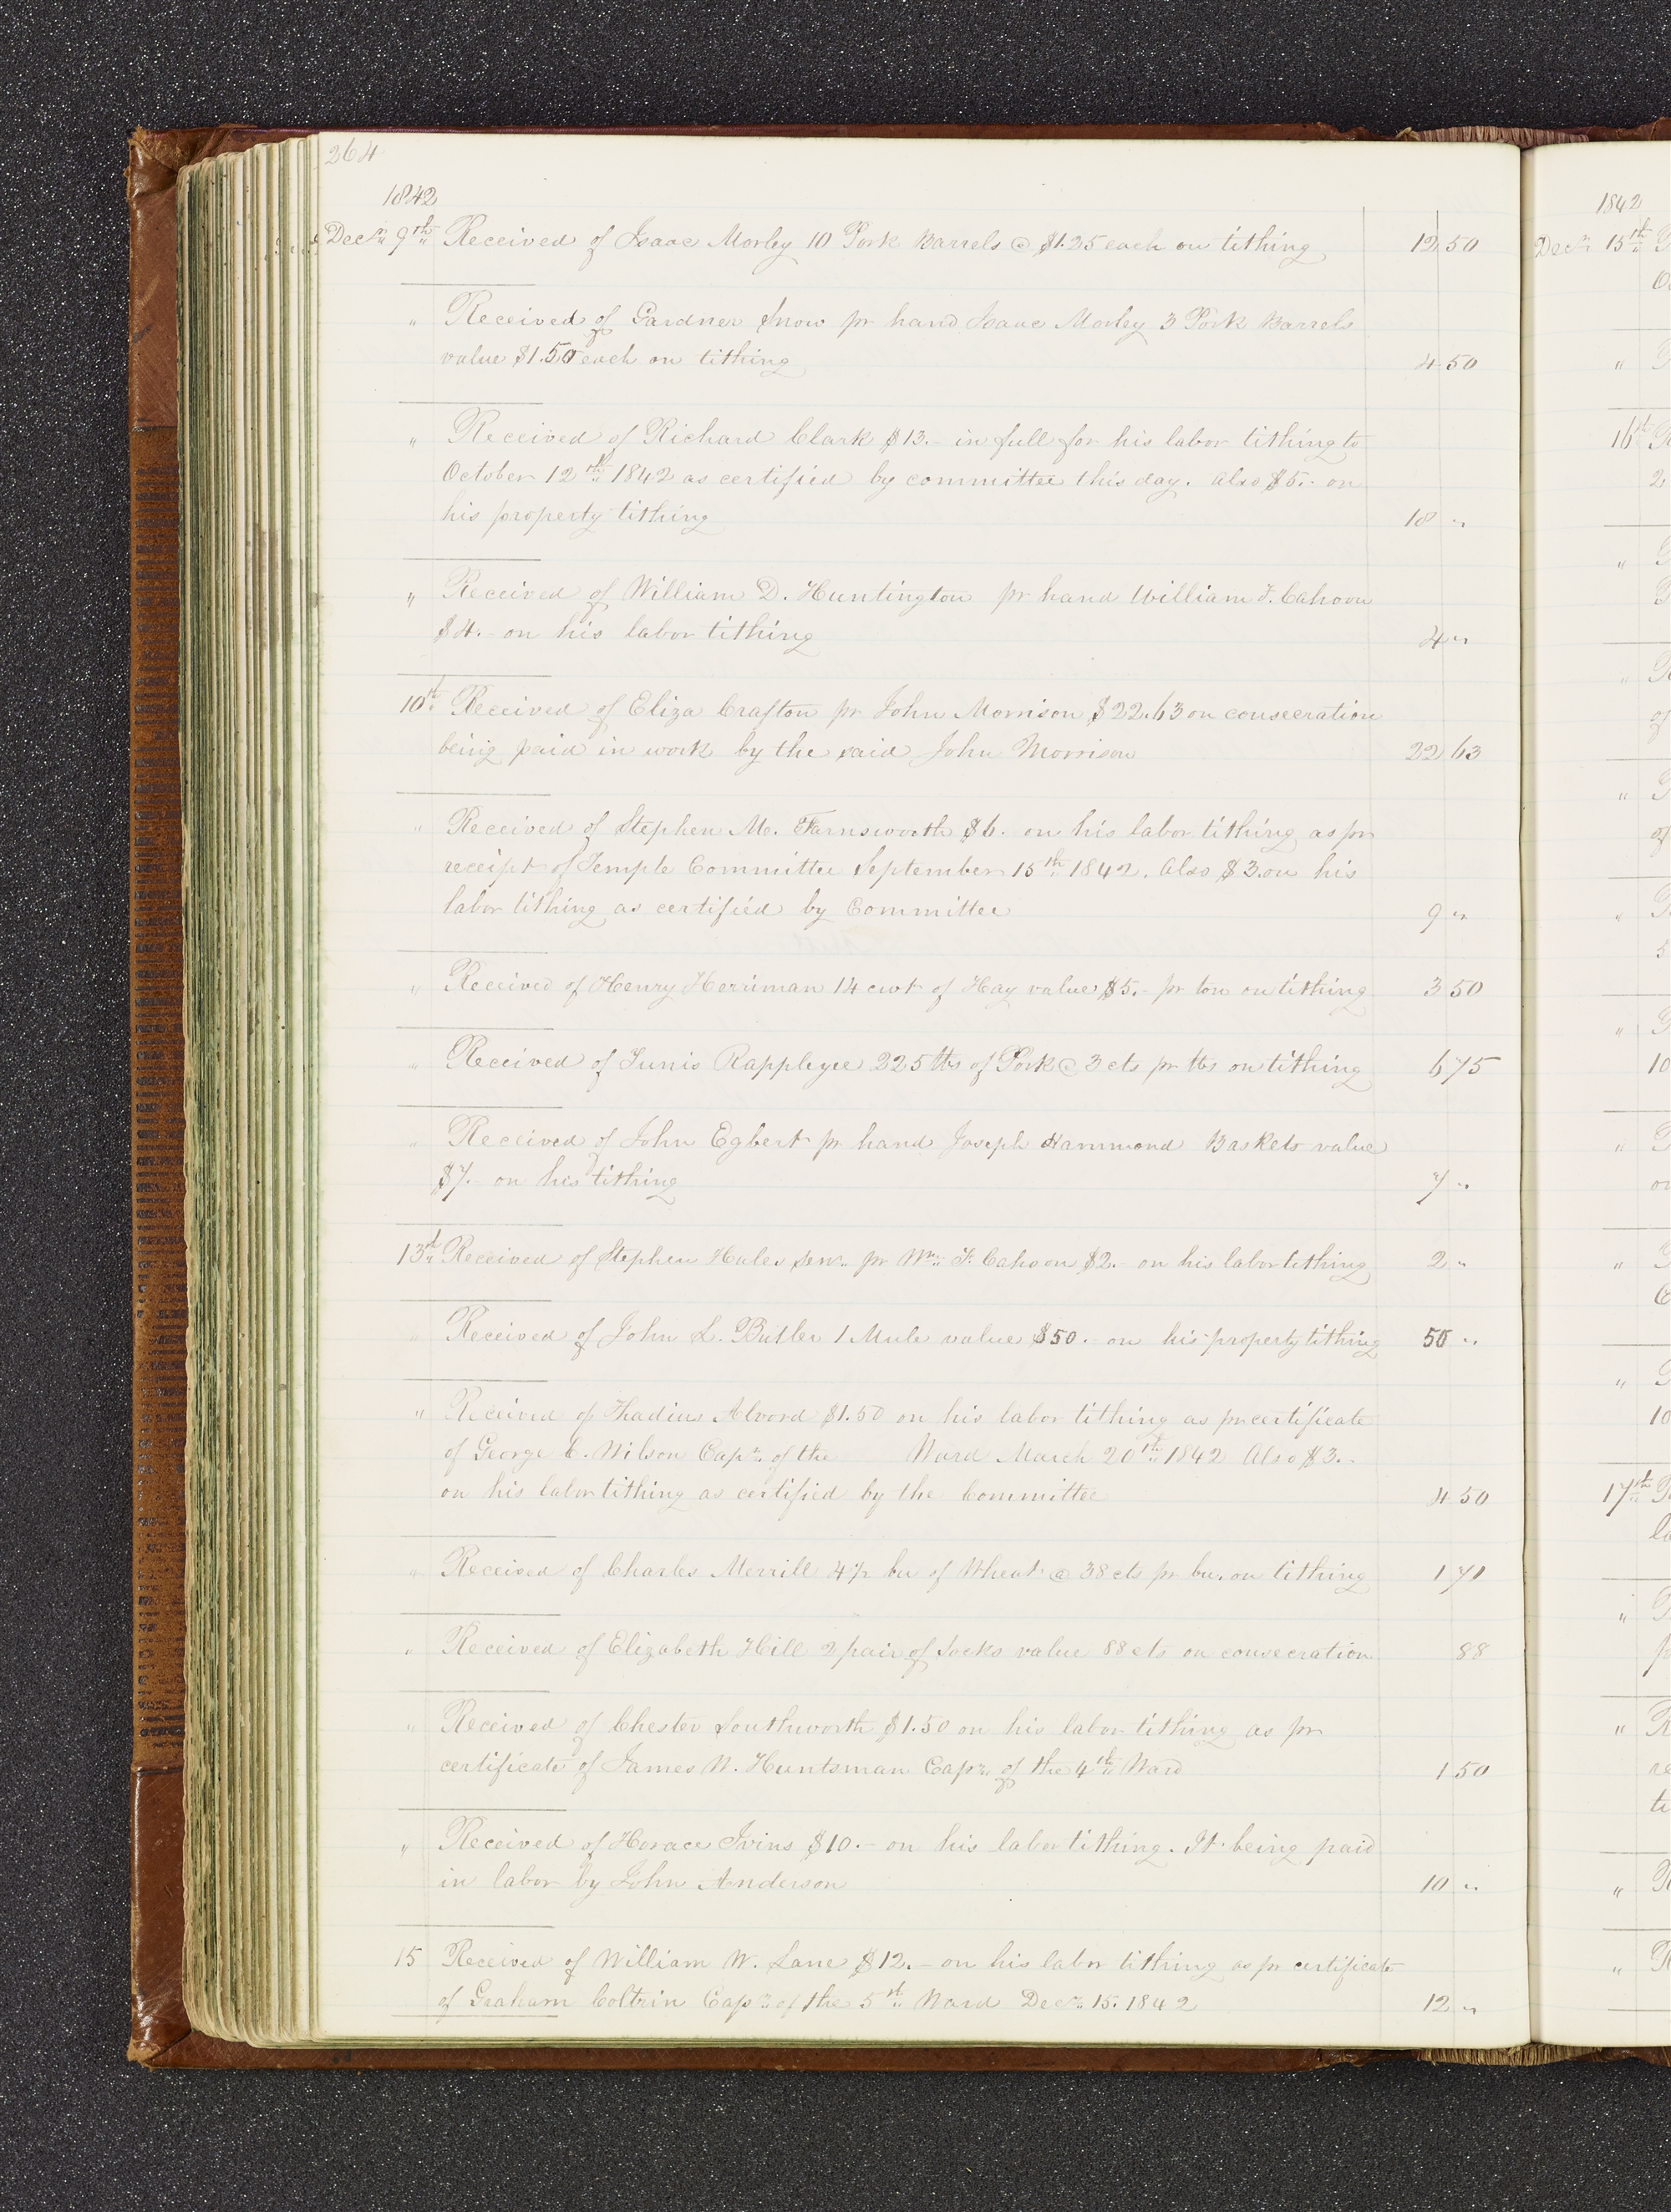 264
1842
Decr 9th Received of Isaac Morley 10 Pork Barrels @ $1.25 each on tithing 12 50
" Received of Gardner Snow pr hand Isaac Morley 3 Pork Barrels
value $1.50 each on tithing 4 50
" Received of Richard Clark $13.- in full for his labor tithing to
October 12th 1842 as certified by committee this day. Also $5.- on
his property tithing 18 "
" Received of William D. Huntington pr hand William F. Cahoon
$4.- on his labor tithing 4 "
10th Received of Eliza Crafton pr John Morrison $22.63 on consecration
being paid in work by the said John Morrison 22 63
" Received of Stephen M. Farnsworth $6. on his labor tithing as pr
receipt of Temple Committee September 15th 1842. Also $3. on his
labor tithing as certified by Committee 9 "
" Received of Henry Herriman 14 cwt of Hay value $5.- pr ton on tithing 3 50
" Received of Tunis Rappleyee 225 lbs of Pork @ 3 cts pr lbs on tithing 6 75
" Received of John Egbert pr hand Joseph Hammond Baskets value
$7.- on his tithing 7 "
13th Received of Stephen Hales Senr. pr Wm. F. Cahoon $2.- on his labor tithing 2 "
" Received of John L. Butler 1 Mule value $50.- on his property tithing 50 "
" Received of Thadius Alvord $1.50 on his labor tithing as pr certificate
of George C. Wilson Capn. of the Ward March 20th 1842 Also $3.-
on his labor tithing as certified by the Committee 4 50
" Received of Charles Merrill 4½ bu of Wheat @ 38 cts pr bu. on tithing 1 71
" Received of Elizabeth Hill 2 pair of Socks value 88 cts on consecration 88
" Received of Chester Southworth $1.50 on his labor tithing as pr
certificate of James W. Huntsman Capn. of the 4th Ward 1 50
" Received of Horace Ivins $10.- on his labor tithing. It being paid
in labor by John Anderson 10 "
15 Received of William W. Lane $12.- on his labor tithing as pr certificate
of Graham Coltrin Capn. of the 5th Ward Decr. 15. 1842 12 "
1842
Decr 15th
"
16th
2
"
"
of
"
of
"
5
"
10
"
on
"
"
10
17th
"
"
re
"
"